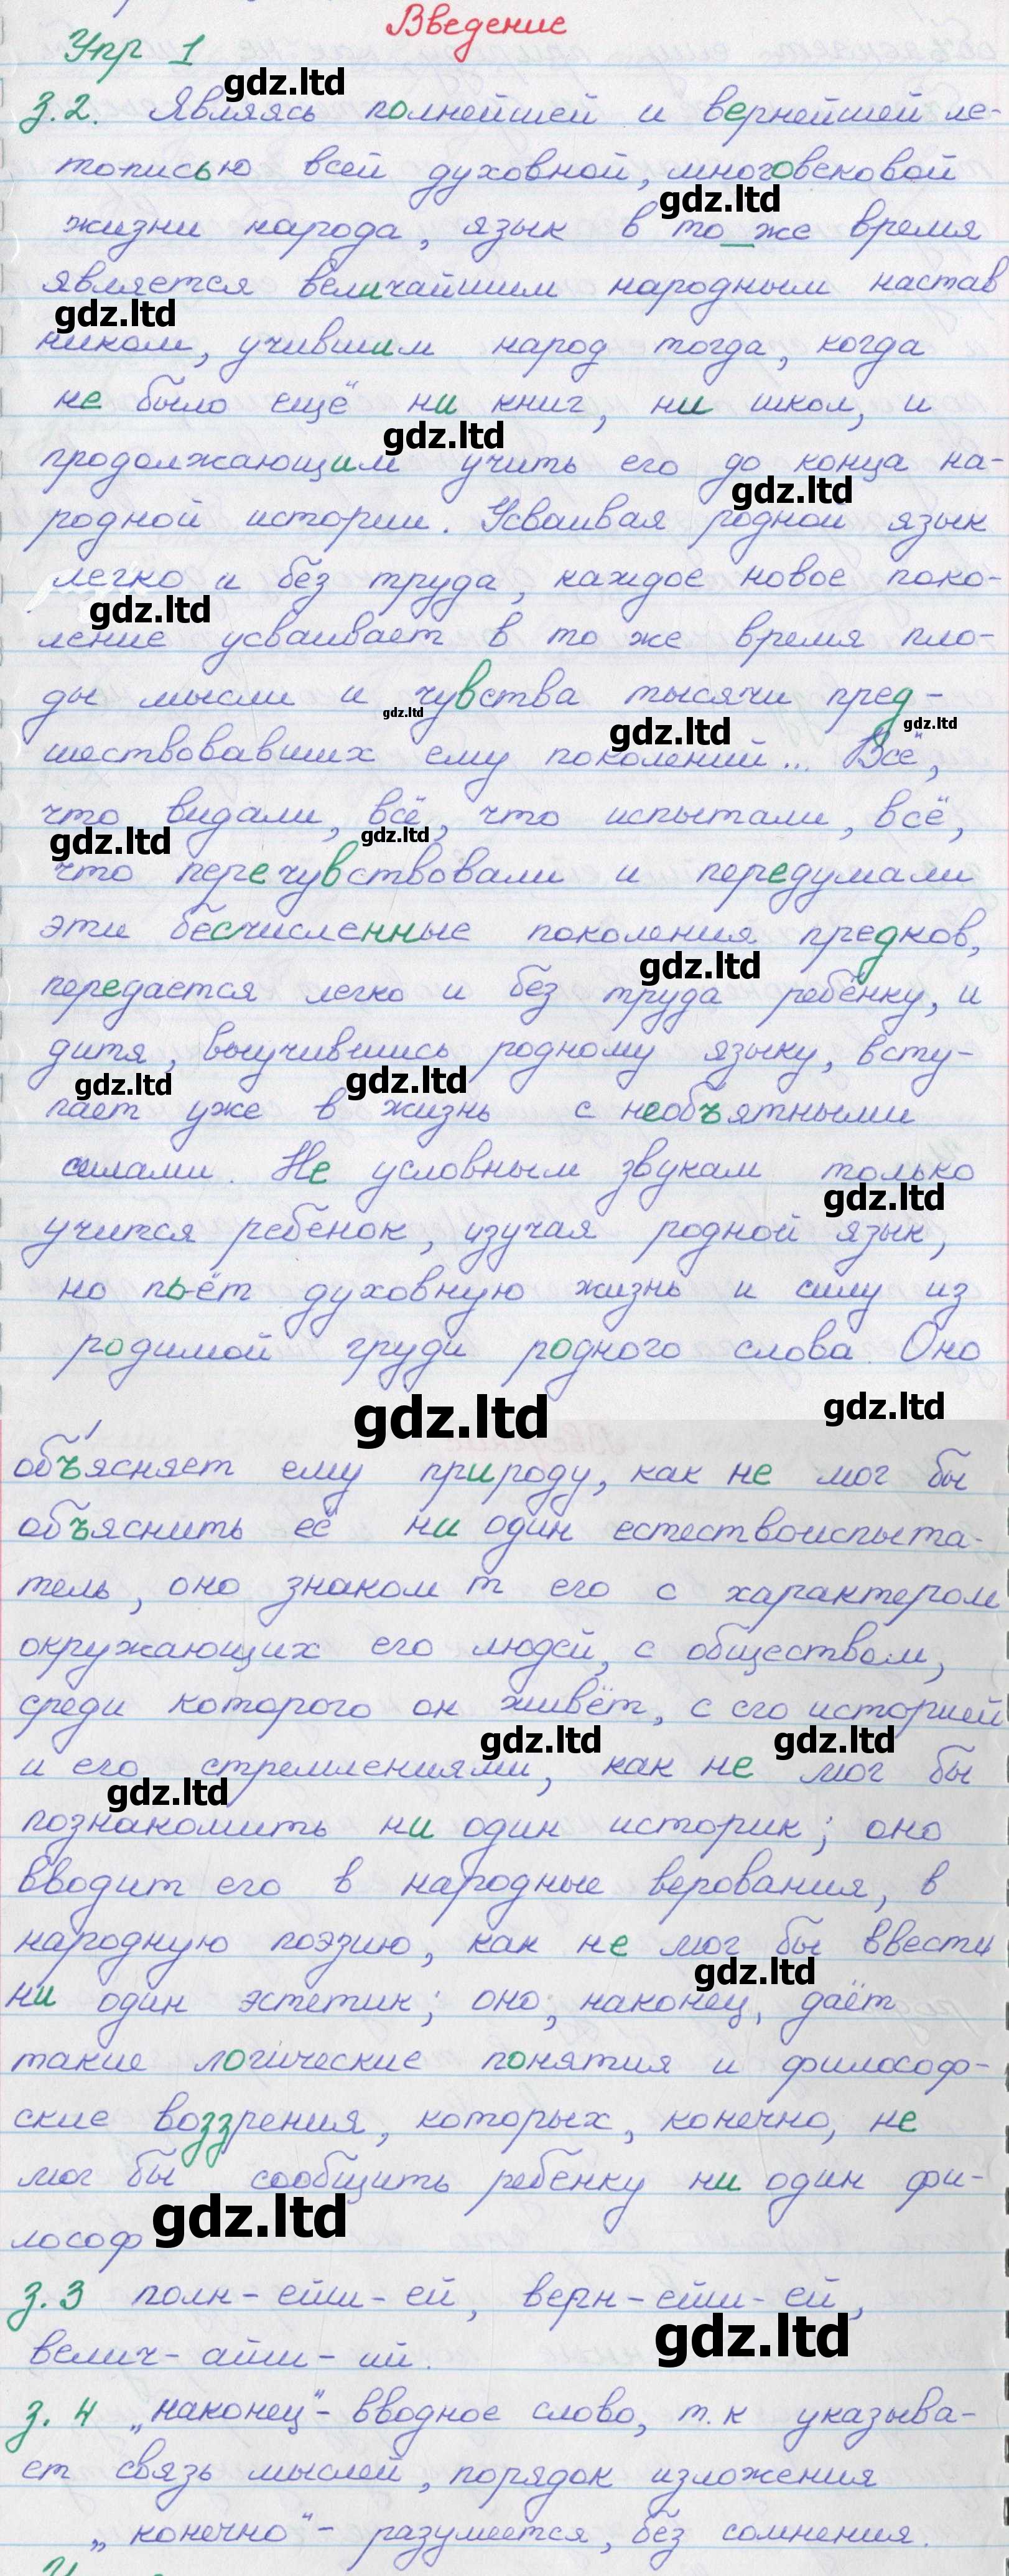 Введение
Упр 1
gdz.ltd
з.2. Являясь полнейшей и вернейшей ле-
тописью всей духовной, многовековой
gdz.ltd
жизни народа, язык в то же время
является величайшим народным настав
gdz.ltd
ником, учившим народ тогда, когда
не было ещё ни книг, ни школ, и
gdz.ltd
продолжающим учить его до конца на-
gdz.ltd
родной истории. Усваивая родной язык
легко и без труда, каждое новое поко-
gdz.ltd
ление усваивает в то же время пло-
ды мысли и чувства тысячи пред-
gdz.ltd gdz.ltd gdz.ltd
шествовавших ему поколений... Всё,
что видали, всё, что испытали, всё,
gdz.ltd gdz.ltd
что перечувствовали и передумали
эти бесчисленные поколения предков,
gdz.ltd
передается легко и без труда ребёнку, и
дитя, выучившись родному языку, всту-
gdz.ltd gdz.ltd
пает уже в жизнь с необъятными
силами. Не условным звукам только
gdz.ltd
учится ребенок, изучая родной язык,
но пьёт духовную жизнь и силу из
родимой груди родного слова. Оно
gdz.ltd gdz.ltd
объясняет ему природу, как не мог бы
объяснить её ни один естествоиспыта-
тель, оно знаком т его с характером
окружающих его людей, с обществом,
среди которого он живёт, с его историей
gdz.ltd gdz.ltd
и его стремлениями, как не мог бы
gdz.ltd
познакомить ни один историк; оно
вводит его в народные верования, в
народную поэзию, как не мог бы ввести
gdz.ltd
ни один эстетик; оно, наконец, даёт
такие логические понятия и философ-
ские воззрения, которых, конечно, не
мог бы сообщить ребенку ни один фи-
лософ gdz.ltd
з.3 полн-ейш-ей, верн-ейш-ей,
gdz.ltd
велич-айш-ий.
з.4 „наконец"- вводное слово, т.к указыва-
ет связь мыслей, порядок изложения
„конечно"- разумеется, без сомнения.